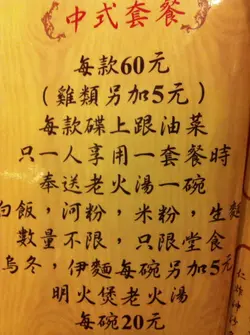 中式套餐
每款60元
（雞類另加5元）
每款碟上跟油菜
只一人享用一套餐時
奉送老火湯一碗
白飯，河粉，米粉，生麵
數量不限，只限堂食
烏冬，伊麵每碗另加5元
明火煲老火湯
每碗20元